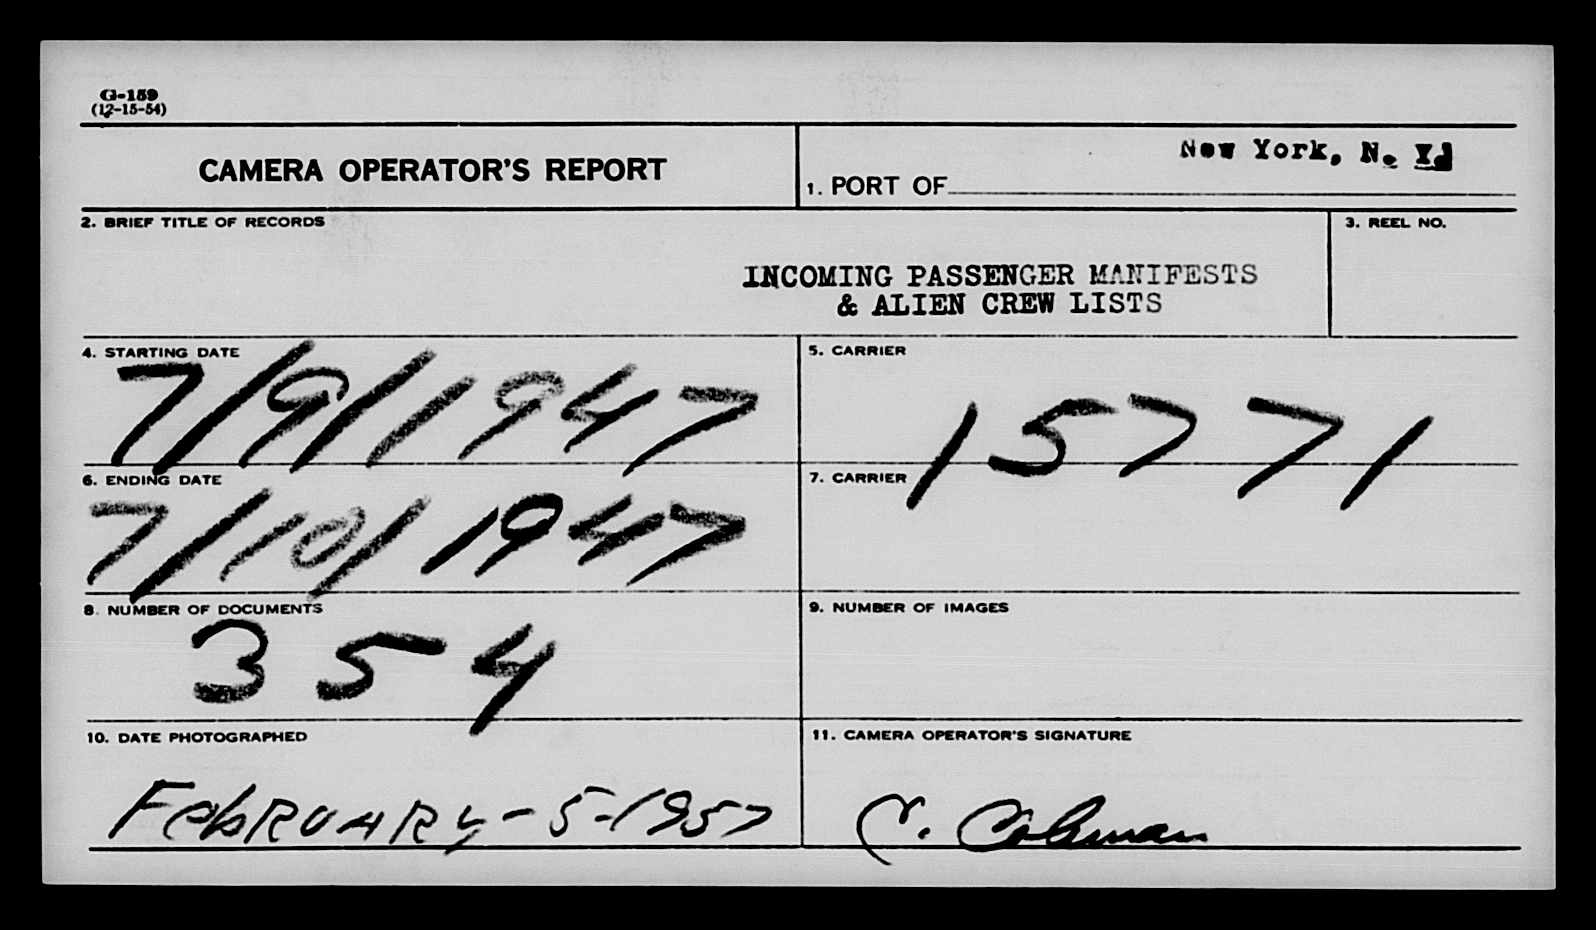 G-159
(12-15-54)
CAMERA OPERATOR'S REPORT
1. PORT OF New York, N. Y.
2. BRIEF TITLE OF RECORDS
INCOMING PASSENGER MANIFESTS
& ALIEN CREW LISTS
3. REEL NO.
4. STARTING DATE
7/9/1947
5. CARRIER
15771
6. ENDING DATE
7/10/1947
7. CARRIER
8. NUMBER OF DOCUMENTS
354
9. NUMBER OF IMAGES
10. DATE PHOTOGRAPHED
FebRUARy-5-1957
11. CAMERA OPERATOR'S SIGNATURE